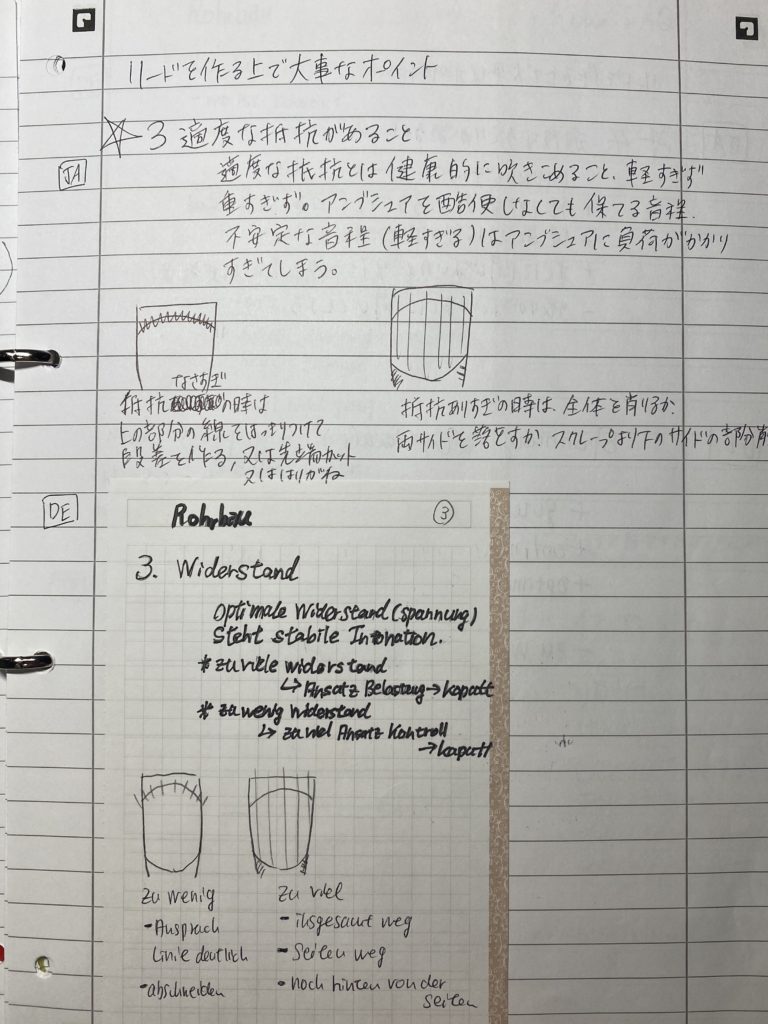 リードを作る上で大事なポイント
3 適度な抵抗があること
JA
適度な抵抗とは健康的に吹きこめること、軽すぎず
重すぎず。アンブシュアを酷使しなくても保てる音程.
不安定な音程(軽すぎる)はアンブシュアに負荷がかかり
すぎてしまう。
なさすぎ
抵抗の時は
上の部分の線をはっきりつけて
段差を作る, 又は先端カット
又ははりがね
抵抗ありすぎの時は、全体を削るか
両サイドを落とすか! スクレープより下のサイドの部分削
DE
Rohrbau
3
3. Widerstand
Optimale Widerstand (spannung)
Steht stabile Intonation.
* zu viele widerstand
↳ Ansatz Belastung → kaputt
* zu wenig widerstand
↳ zu viel Ansatz Kontroll
→ kaputt
zu wenig
- Ansprach
Linie deutlich
- abschneiden
zu viel
- insgesamt weg
- Seiten weg
• noch hinten von der
seiten